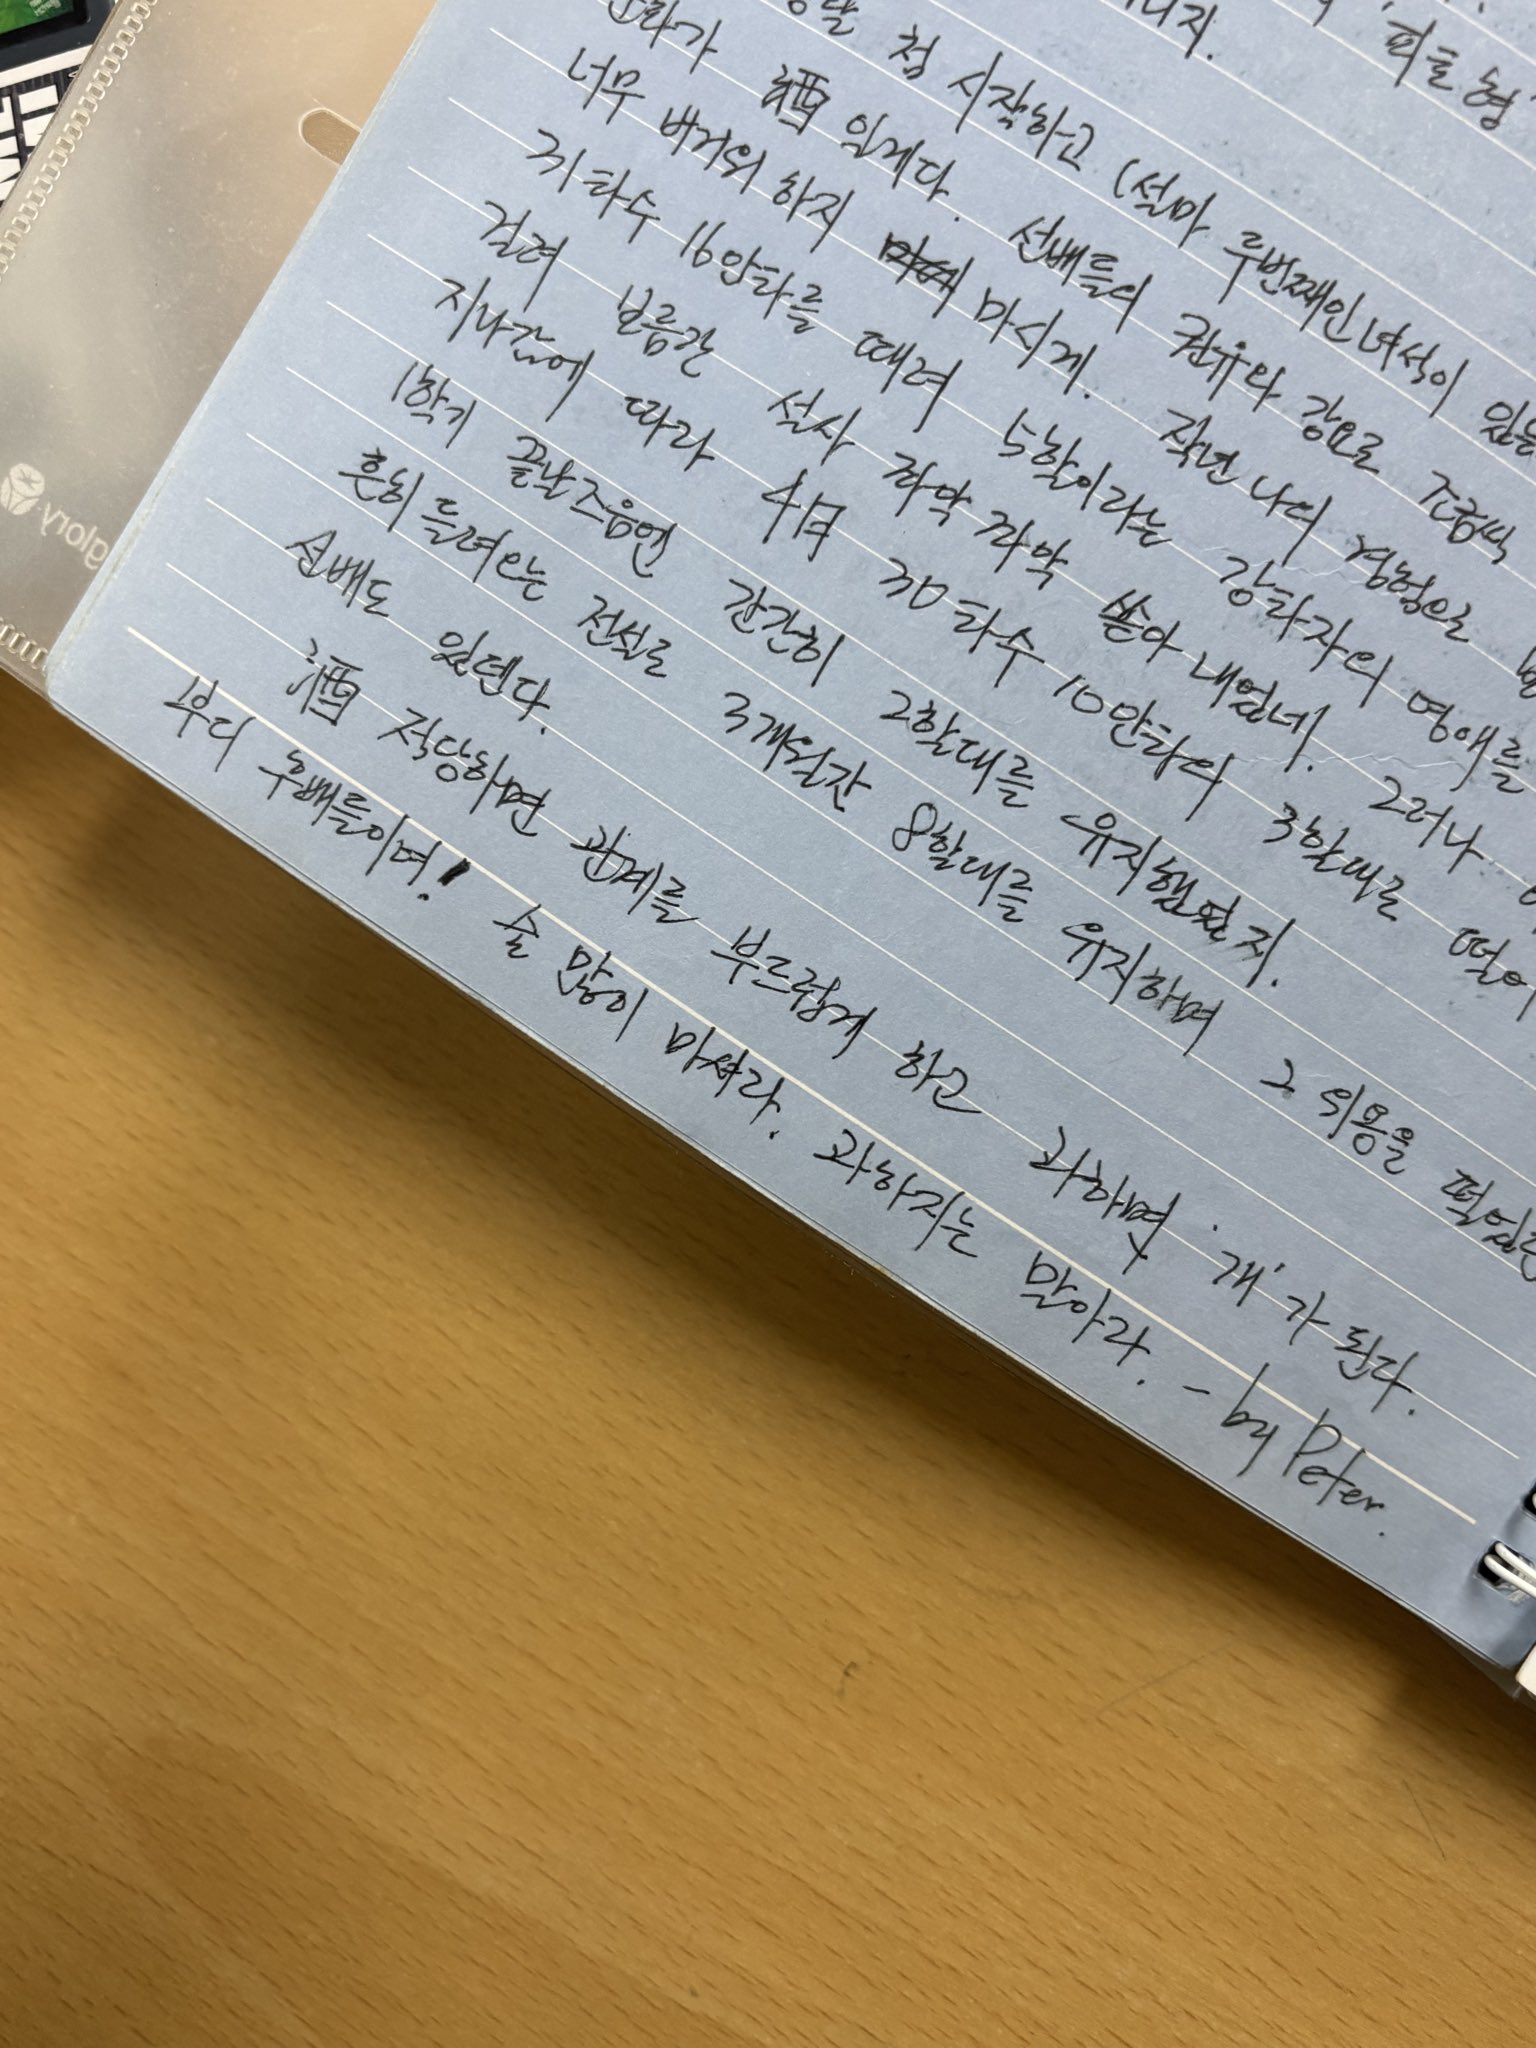 피흘형
니지.
첨 시작하고 (설마 두번째인녀석이 있는
酒 일게다. 선배들의 권유와 강요로 조금씩
너무 버거워 하지 마시게. 작년 나의 경험으로
31타수 16안타를 때려 5할이라는 강타자의 명예를
걸며 보름간 설사 좌악 좌악 쏟아 내었네. 그러나
지나감에 따라 4月 30타수 10안타의 3할대로 떨어
1학기 끝난즈음엔 간간히 2할대를 유지했었지.
흔히 들려오는 전설로 3개월간 8할대를 유지하며 그 위용을 떨쳤
선배도 있덴다.
酒 적당하면 관계를 부드럽게 하고 과하면 '개'가 된다.
부디 후배들이여! 술 많이 마셔라. 과하지는 말아라. - by Peter.
glory